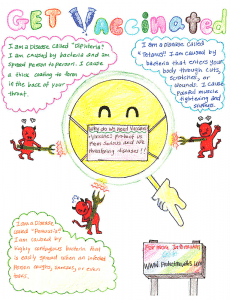 GET Vaccinated
I am a Disease called "Diphtheria"
I am caused by bacteria and am
spread person to person. I cause
a thick coating to form
in the back of your
throat.
I am a Disease called
"Tetanus". I am caused by
bacteria that enters your
body through cuts,
scratches, or
wounds. I cause
painful muscle
tightening and
Why do we need Vaccines
Vaccines protect us
from serious and life
threatening diseases!!
I am a Disease
called "Pertussis"
I am caused by
highly contagious bacteria that
is easily spread when an infected
person coughs, sneezes, or even
talks.
For more Information